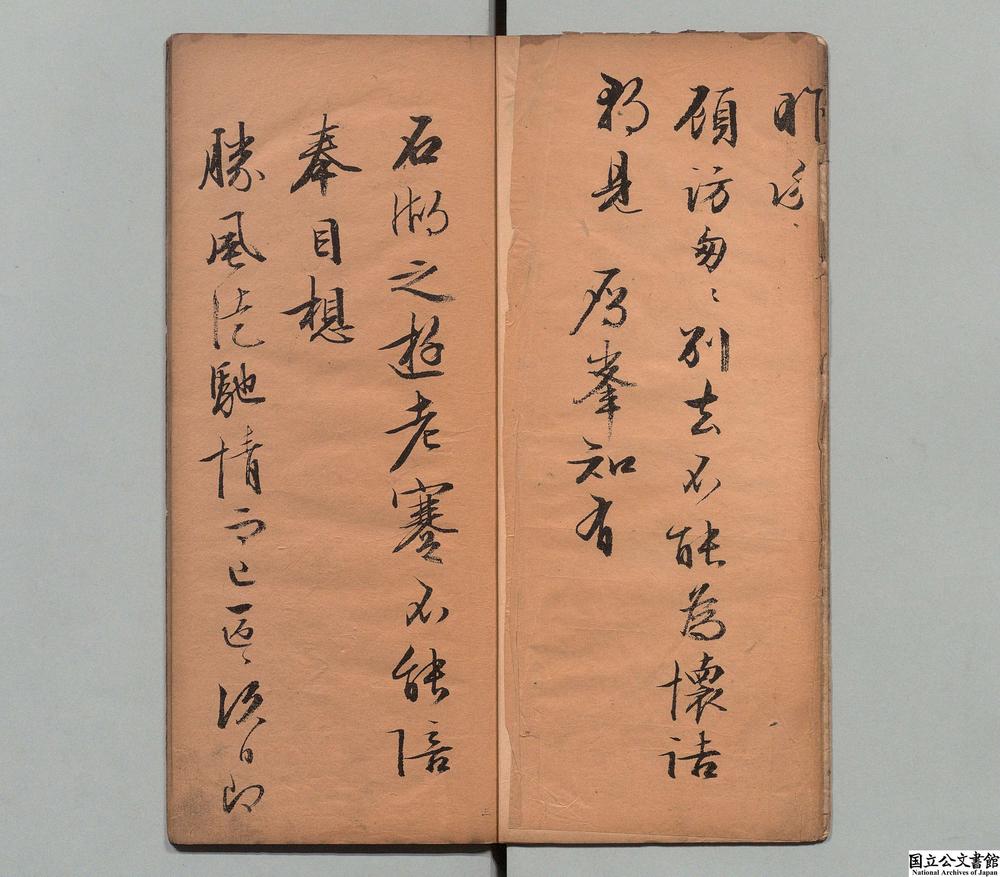 昨辱
顧訪匆匆別去不能為懷詰
朝見 雁峯知有
石湖之遊老蹇不能陪
奉目想
勝風徒馳情而已區區須日即
国立公文書館
National Archives of Japan